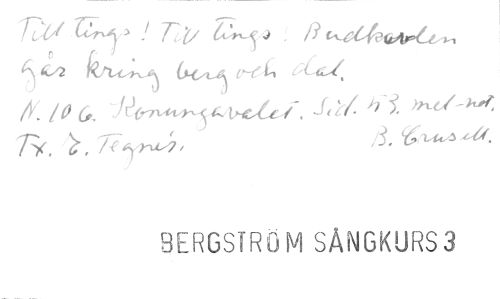 Till tings! Till tings! Budkavlen
går kring berg och dal.
N. 106. Konungavalet. Sid. 53. mel-not.
Tx. E. Tegnér. B. Crusell.
BERGSTRÖM SÅNGKURS 3